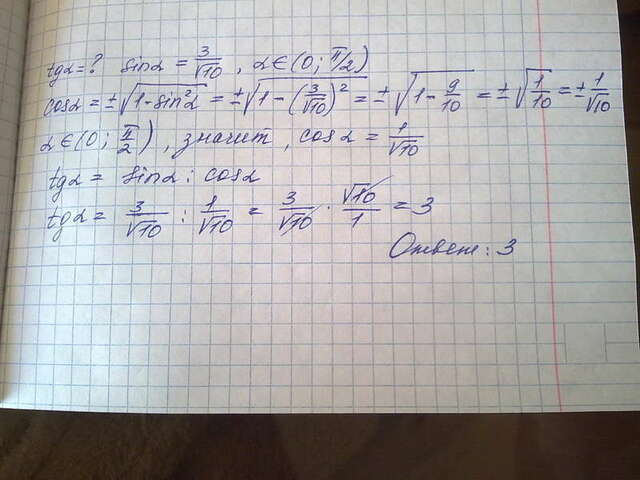 tgα = ? sinα = 3/√10, α∈(0; π/2)
cosα = ±√(1-sin²α) = ±√(1-(3/√10)²) = ±√(1-9/10) = ±√(1/10) = ±1/√10
α∈(0; π/2), значит, cosα = 1/√10
tgα = sinα : cosα
tgα = 3/√10 : 1/√10 = 3/√10 · √10/1 = 3
Ответ: 3